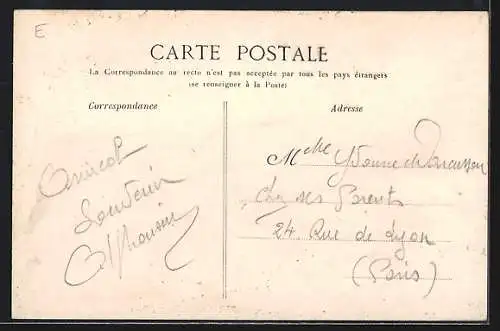 E
CARTE POSTALE
La Correspondance au recto n'est pas acceptée par tous les pays étrangers
(se renseigner à la Poste)
Correspondance
Adresse
Amical
Souvenir
Melle Yvonne
Chez ses Parents
24 Rue de Lyon
(Paris)